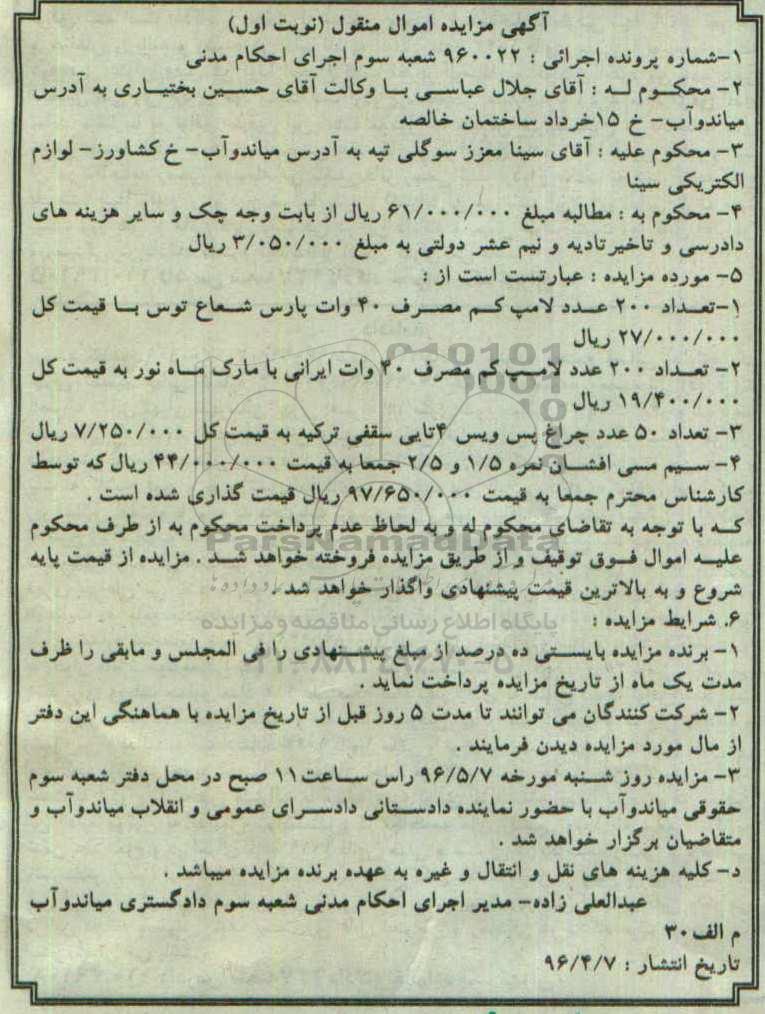 آگهی مزایده اموال منقول (نوبت اول)
۱-شماره پرونده اجرائی : ۹۶۰۰۲۲ شعبه سوم اجرای احکام مدنی
۲- محکوم له : آقای جلال عباسی با وکالت آقای حسین بختیاری به آدرس
میاندوآب- خ ۱۵خرداد ساختمان خالصه
۳- محکوم علیه : آقای سینا معزز سوگلی تپه به آدرس میاندوآب- خ کشاورز- لوازم
الکتریکی سینا
۴- محکوم به : مطالبه مبلغ ۶۱/۰۰۰/۰۰۰ ریال از بابت وجه چک و سایر هزینه های
دادرسی و تاخیرتادیه و نیم عشر دولتی به مبلغ ۳/۰۵۰/۰۰۰ ریال
۵- مورده مزایده : عبارتست است از :
۱-تعداد ۲۰۰ عدد لامپ کم مصرف ۴۰ وات پارس شعاع توس با قیمت کل
۲۷/۰۰۰/۰۰۰ ریال
۲- تعداد ۲۰۰ عدد لامپ کم مصرف ۴۰ وات ایرانی با مارک ماه نور به قیمت کل
۱۹/۴۰۰/۰۰۰ ریال
۳- تعداد ۵۰ عدد چراغ پس ویس ۴تایی سقفی ترکیه به قیمت کل ۷/۲۵۰/۰۰۰ ریال
۴- سیم مسی افشان نمره ۱/۵ و ۲/۵ جمعا به قیمت ۴۴/۰۰۰/۰۰۰ ریال که توسط
کارشناس محترم جمعا به قیمت ۹۷/۶۵۰/۰۰۰ ریال قیمت گذاری شده است .
که با توجه به تقاضای محکوم له و به لحاظ عدم پرداخت محکوم به از طرف محکوم
علیه اموال فوق توقیف و از طریق مزایده فروخته خواهد شد . مزایده از قیمت پایه
شروع و به بالاترین قیمت پیشنهادی واگذار خواهد شد .
۶. شرایط مزایده :
۱- برنده مزایده بایستی ده درصد از مبلغ پیشنهادی را فی المجلس و مابقی را ظرف
مدت یک ماه از تاریخ مزایده پرداخت نماید .
۲- شرکت کنندگان می توانند تا مدت ۵ روز قبل از تاریخ مزایده با هماهنگی این دفتر
از مال مورد مزایده دیدن فرمایند .
۳- مزایده روز شنبه مورخه ۹۶/۵/۷ راس ساعت۱۱ صبح در محل دفتر شعبه سوم
حقوقی میاندوآب با حضور نماینده دادستانی دادسرای عمومی و انقلاب میاندوآب و
متقاضیان برگزار خواهد شد .
د- کلیه هزینه های نقل و انتقال و غیره به عهده برنده مزایده میباشد .
عبدالعلی زاده- مدیر اجرای احکام مدنی شعبه سوم دادگستری میاندوآب
م الف۳۰
تاریخ انتشار : ۹۶/۴/۷
ParsNamadData
پایگاه اطلاع رسانی مناقصه و مزایده